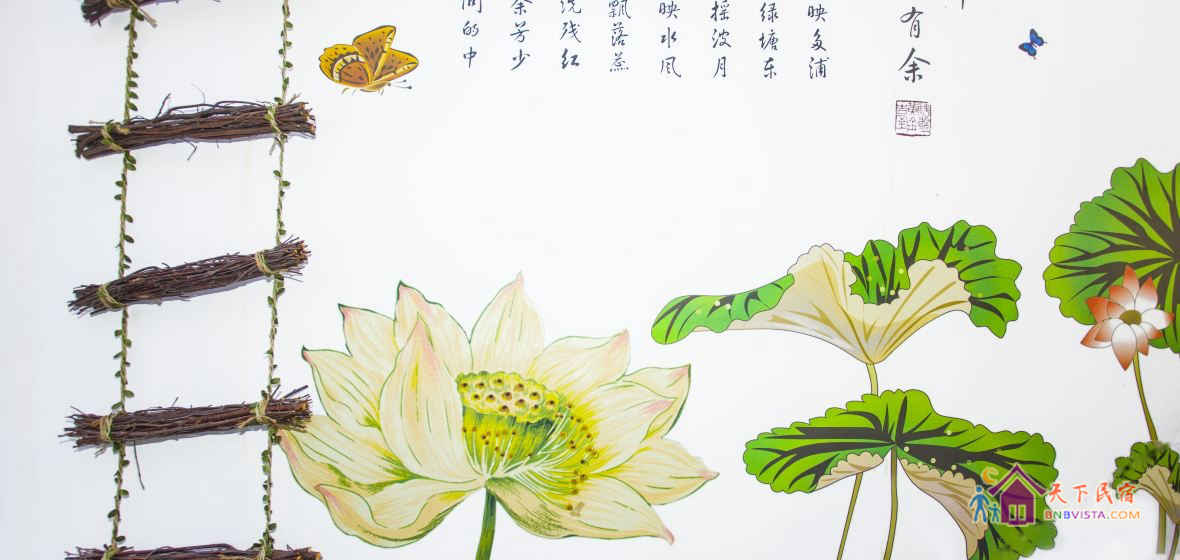 有余
映多浦
绿塘东
摇波月
映水风
飘落蕊
残红
余芳少
的中
天下民宿
BNBVISTA.COM